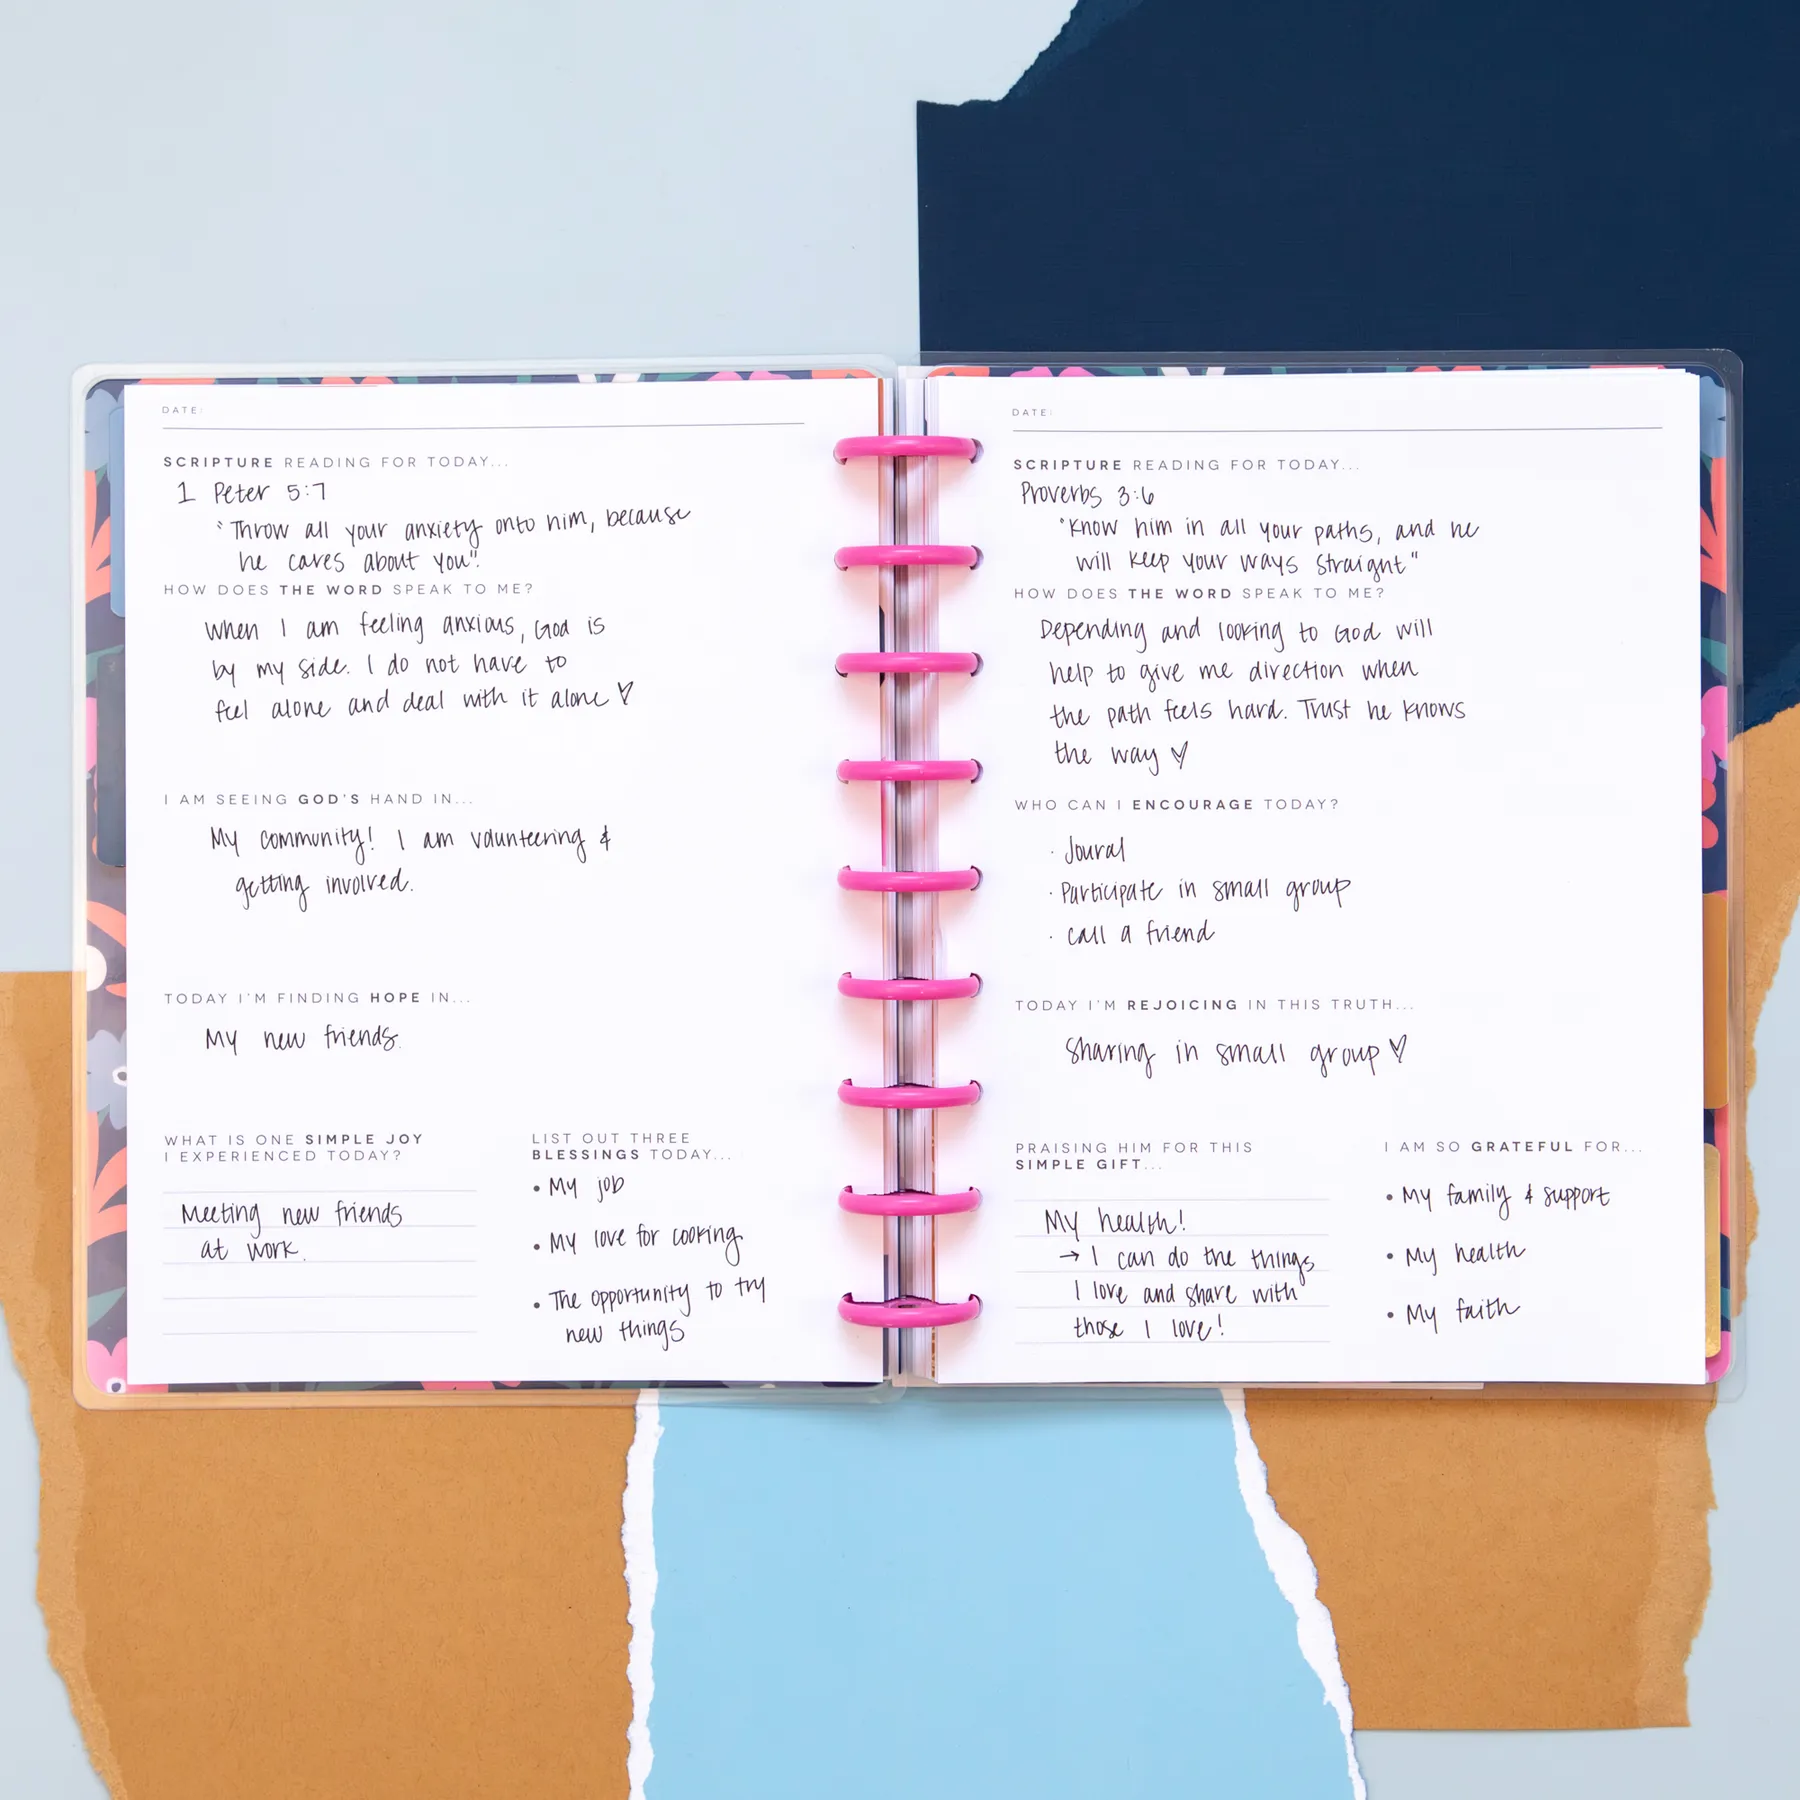 DATE:
SCRIPTURE READING FOR TODAY...
1 Peter 5:7
"Throw all your anxiety onto him, because
he cares about you".
HOW DOES THE WORD SPEAK TO ME?
When I am feeling anxious, God is
by my side. I do not have to
feel alone and deal with it alone ♡
I AM SEEING GOD'S HAND IN...
My community! I am volunteering &
getting involved.
TODAY I'M FINDING HOPE IN...
My new friends.
WHAT IS ONE SIMPLE JOY
I EXPERIENCED TODAY?
Meeting new friends
at work.
LIST OUT THREE
BLESSINGS TODAY...
• My job
• My love for cooking
• The opportunity to try
new things
DATE:
SCRIPTURE READING FOR TODAY...
Proverbs 3:6
"Know him in all your paths, and he
will keep your ways straight"
HOW DOES THE WORD SPEAK TO ME?
Depending and looking to God will
help to give me direction when
the path feels hard. Trust he knows
the way ♡
WHO CAN I ENCOURAGE TODAY?
· Joural
· Participate in small group
· Call a friend
TODAY I'M REJOICING IN THIS TRUTH...
Sharing in small group ♡
PRAISING HIM FOR THIS
SIMPLE GIFT...
My health!
→ I can do the things
I love and share with
those I love!
I AM SO GRATEFUL FOR...
• My family & support
• My health
• My faith